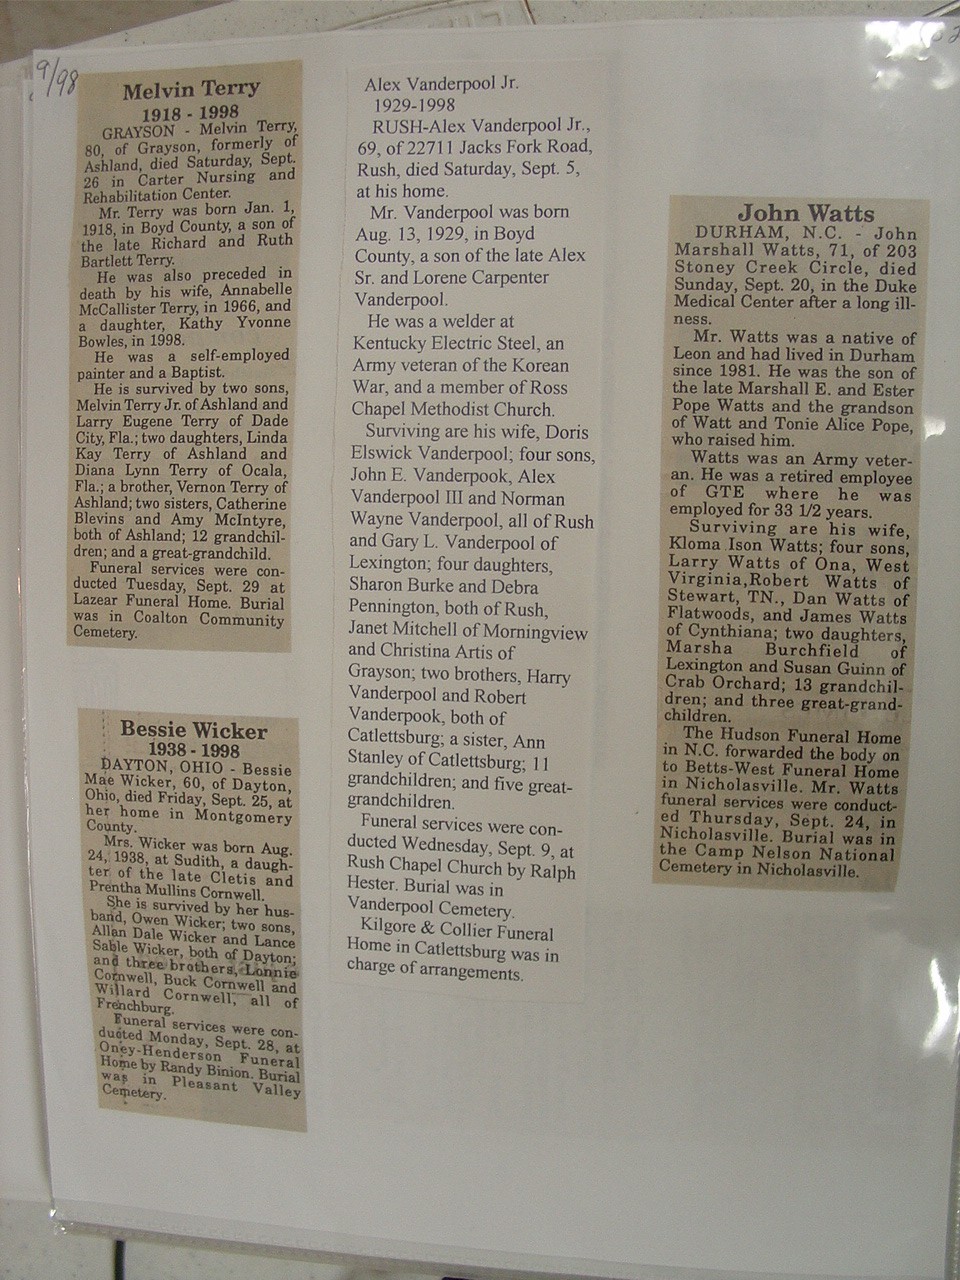 9/98
Melvin Terry
1918 - 1998
GRAYSON - Melvin Terry,
80, of Grayson, formerly of
Ashland, died Saturday, Sept.
26 in Carter Nursing and
Rehabilitation Center.
Mr. Terry was born Jan. 1,
1918, in Boyd County, a son of
the late Richard and Ruth
Bartlett Terry.
He was also preceded in
death by his wife, Annabelle
McCallister Terry, in 1966, and
a daughter, Kathy Yvonne
Bowles, in 1998.
He was a self-employed
painter and a Baptist.
He is survived by two sons,
Melvin Terry Jr. of Ashland and
Larry Eugene Terry of Dade
City, Fla.; two daughters, Linda
Kay Terry of Ashland and
Diana Lynn Terry of Ocala,
Fla.; a brother, Vernon Terry of
Ashland; two sisters, Catherine
Blevins and Amy McIntyre,
both of Ashland; 12 grandchil-
dren; and a great-grandchild.
Funeral services were con-
ducted Tuesday, Sept. 29 at
Lazear Funeral Home. Burial
was in Coalton Community
Cemetery.
Bessie Wicker
1938 - 1998
DAYTON, OHIO - Bessie
Mae Wicker, 60, of Dayton,
Ohio, died Friday, Sept. 25, at
her home in Montgomery
County.
Mrs. Wicker was born Aug.
24, 1938, at Sudith, a daugh-
ter of the late Cletis and
Prentha Mullins Cornwell.
She is survived by her hus-
band, Owen Wicker; two sons,
Allan Dale Wicker and Lance
Sable Wicker, both of Dayton;
and three brothers, Lonnie
Cornwell, Buck Cornwell and
Willard Cornwell, all of
Frenchburg.
Funeral services were con-
ducted Monday, Sept. 28, at
Oney-Henderson Funeral
Home by Randy Binion. Burial
was in Pleasant Valley
Cemetery.
Alex Vanderpool Jr.
1929-1998
RUSH-Alex Vanderpool Jr.,
69, of 22711 Jacks Fork Road,
Rush, died Saturday, Sept. 5,
at his home.
Mr. Vanderpool was born
Aug. 13, 1929, in Boyd
County, a son of the late Alex
Sr. and Lorene Carpenter
Vanderpool.
He was a welder at
Kentucky Electric Steel, an
Army veteran of the Korean
War, and a member of Ross
Chapel Methodist Church.
Surviving are his wife, Doris
Elswick Vanderpool; four sons,
John E. Vanderpook, Alex
Vanderpool III and Norman
Wayne Vanderpool, all of Rush
and Gary L. Vanderpool of
Lexington; four daughters,
Sharon Burke and Debra
Pennington, both of Rush,
Janet Mitchell of Morningview
and Christina Artis of
Grayson; two brothers, Harry
Vanderpool and Robert
Vanderpook, both of
Catlettsburg; a sister, Ann
Stanley of Catlettsburg; 11
grandchildren; and five great-
grandchildren.
Funeral services were con-
ducted Wednesday, Sept. 9, at
Rush Chapel Church by Ralph
Hester. Burial was in
Vanderpool Cemetery.
Kilgore & Collier Funeral
Home in Catlettsburg was in
charge of arrangements.
John Watts
DURHAM, N.C. - John
Marshall Watts, 71, of 203
Stoney Creek Circle, died
Sunday, Sept. 20, in the Duke
Medical Center after a long ill-
ness.
Mr. Watts was a native of
Leon and had lived in Durham
since 1981. He was the son of
the late Marshall E. and Ester
Pope Watts and the grandson
of Watt and Tonie Alice Pope,
who raised him.
Watts was an Army veter-
an. He was a retired employee
of GTE where he was
employed for 33 1/2 years.
Surviving are his wife,
Kloma Ison Watts; four sons,
Larry Watts of Ona, West
Virginia,Robert Watts of
Stewart, TN., Dan Watts of
Flatwoods, and James Watts
of Cynthiana; two daughters,
Marsha Burchfield of
Lexington and Susan Guinn of
Crab Orchard; 13 grandchil-
dren; and three great-grand-
children.
The Hudson Funeral Home
in N.C. forwarded the body on
to Betts-West Funeral Home
in Nicholasville. Mr. Watts
funeral services were conduct-
ed Thursday, Sept. 24, in
Nicholasville. Burial was in
the Camp Nelson National
Cemetery in Nicholasville.